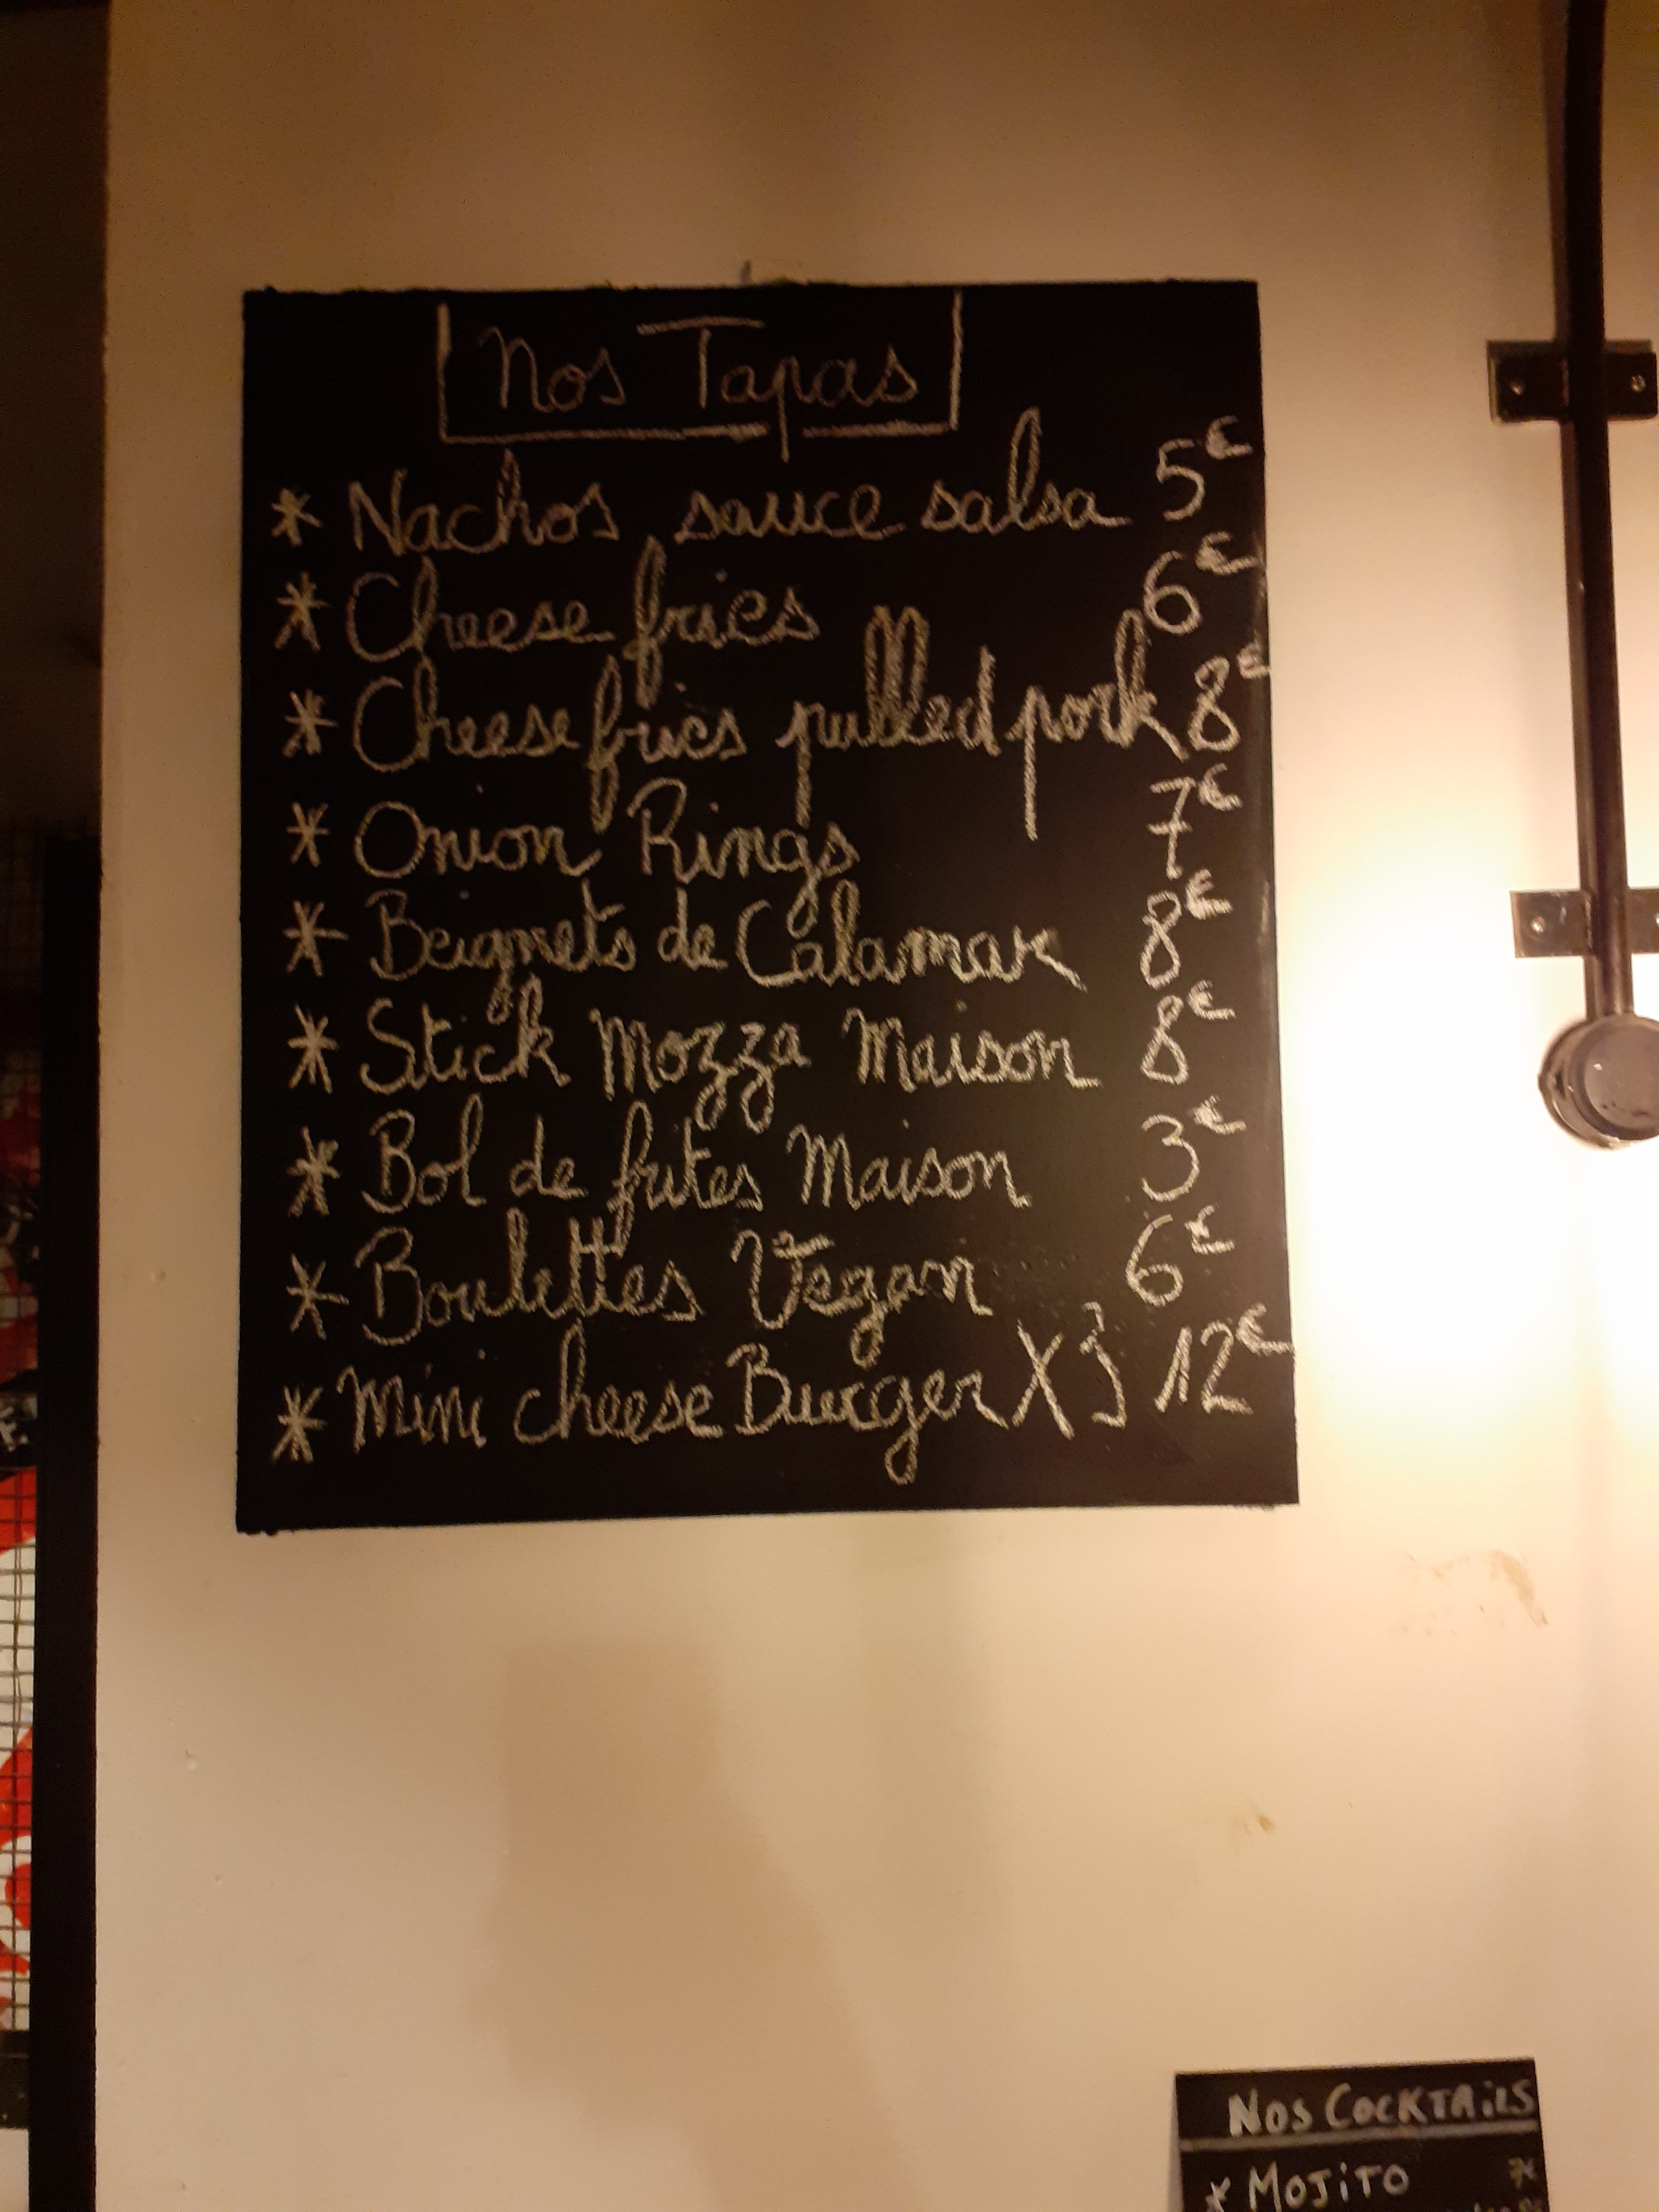 Nos Tapas
* Nachos sauce salsa 5€
* Cheese fries 6€
* Cheese fries pulled pork 8€
* Onion Rings 7€
* Beignets de Calamar 8€
* Stick Mozza Maison 8€
* Bol de frites Maison 3€
* Boulettes Vegan 6€
* Mini cheese Burger X3 12€
NOS COCKTAiLS
* MOJiTO 7€